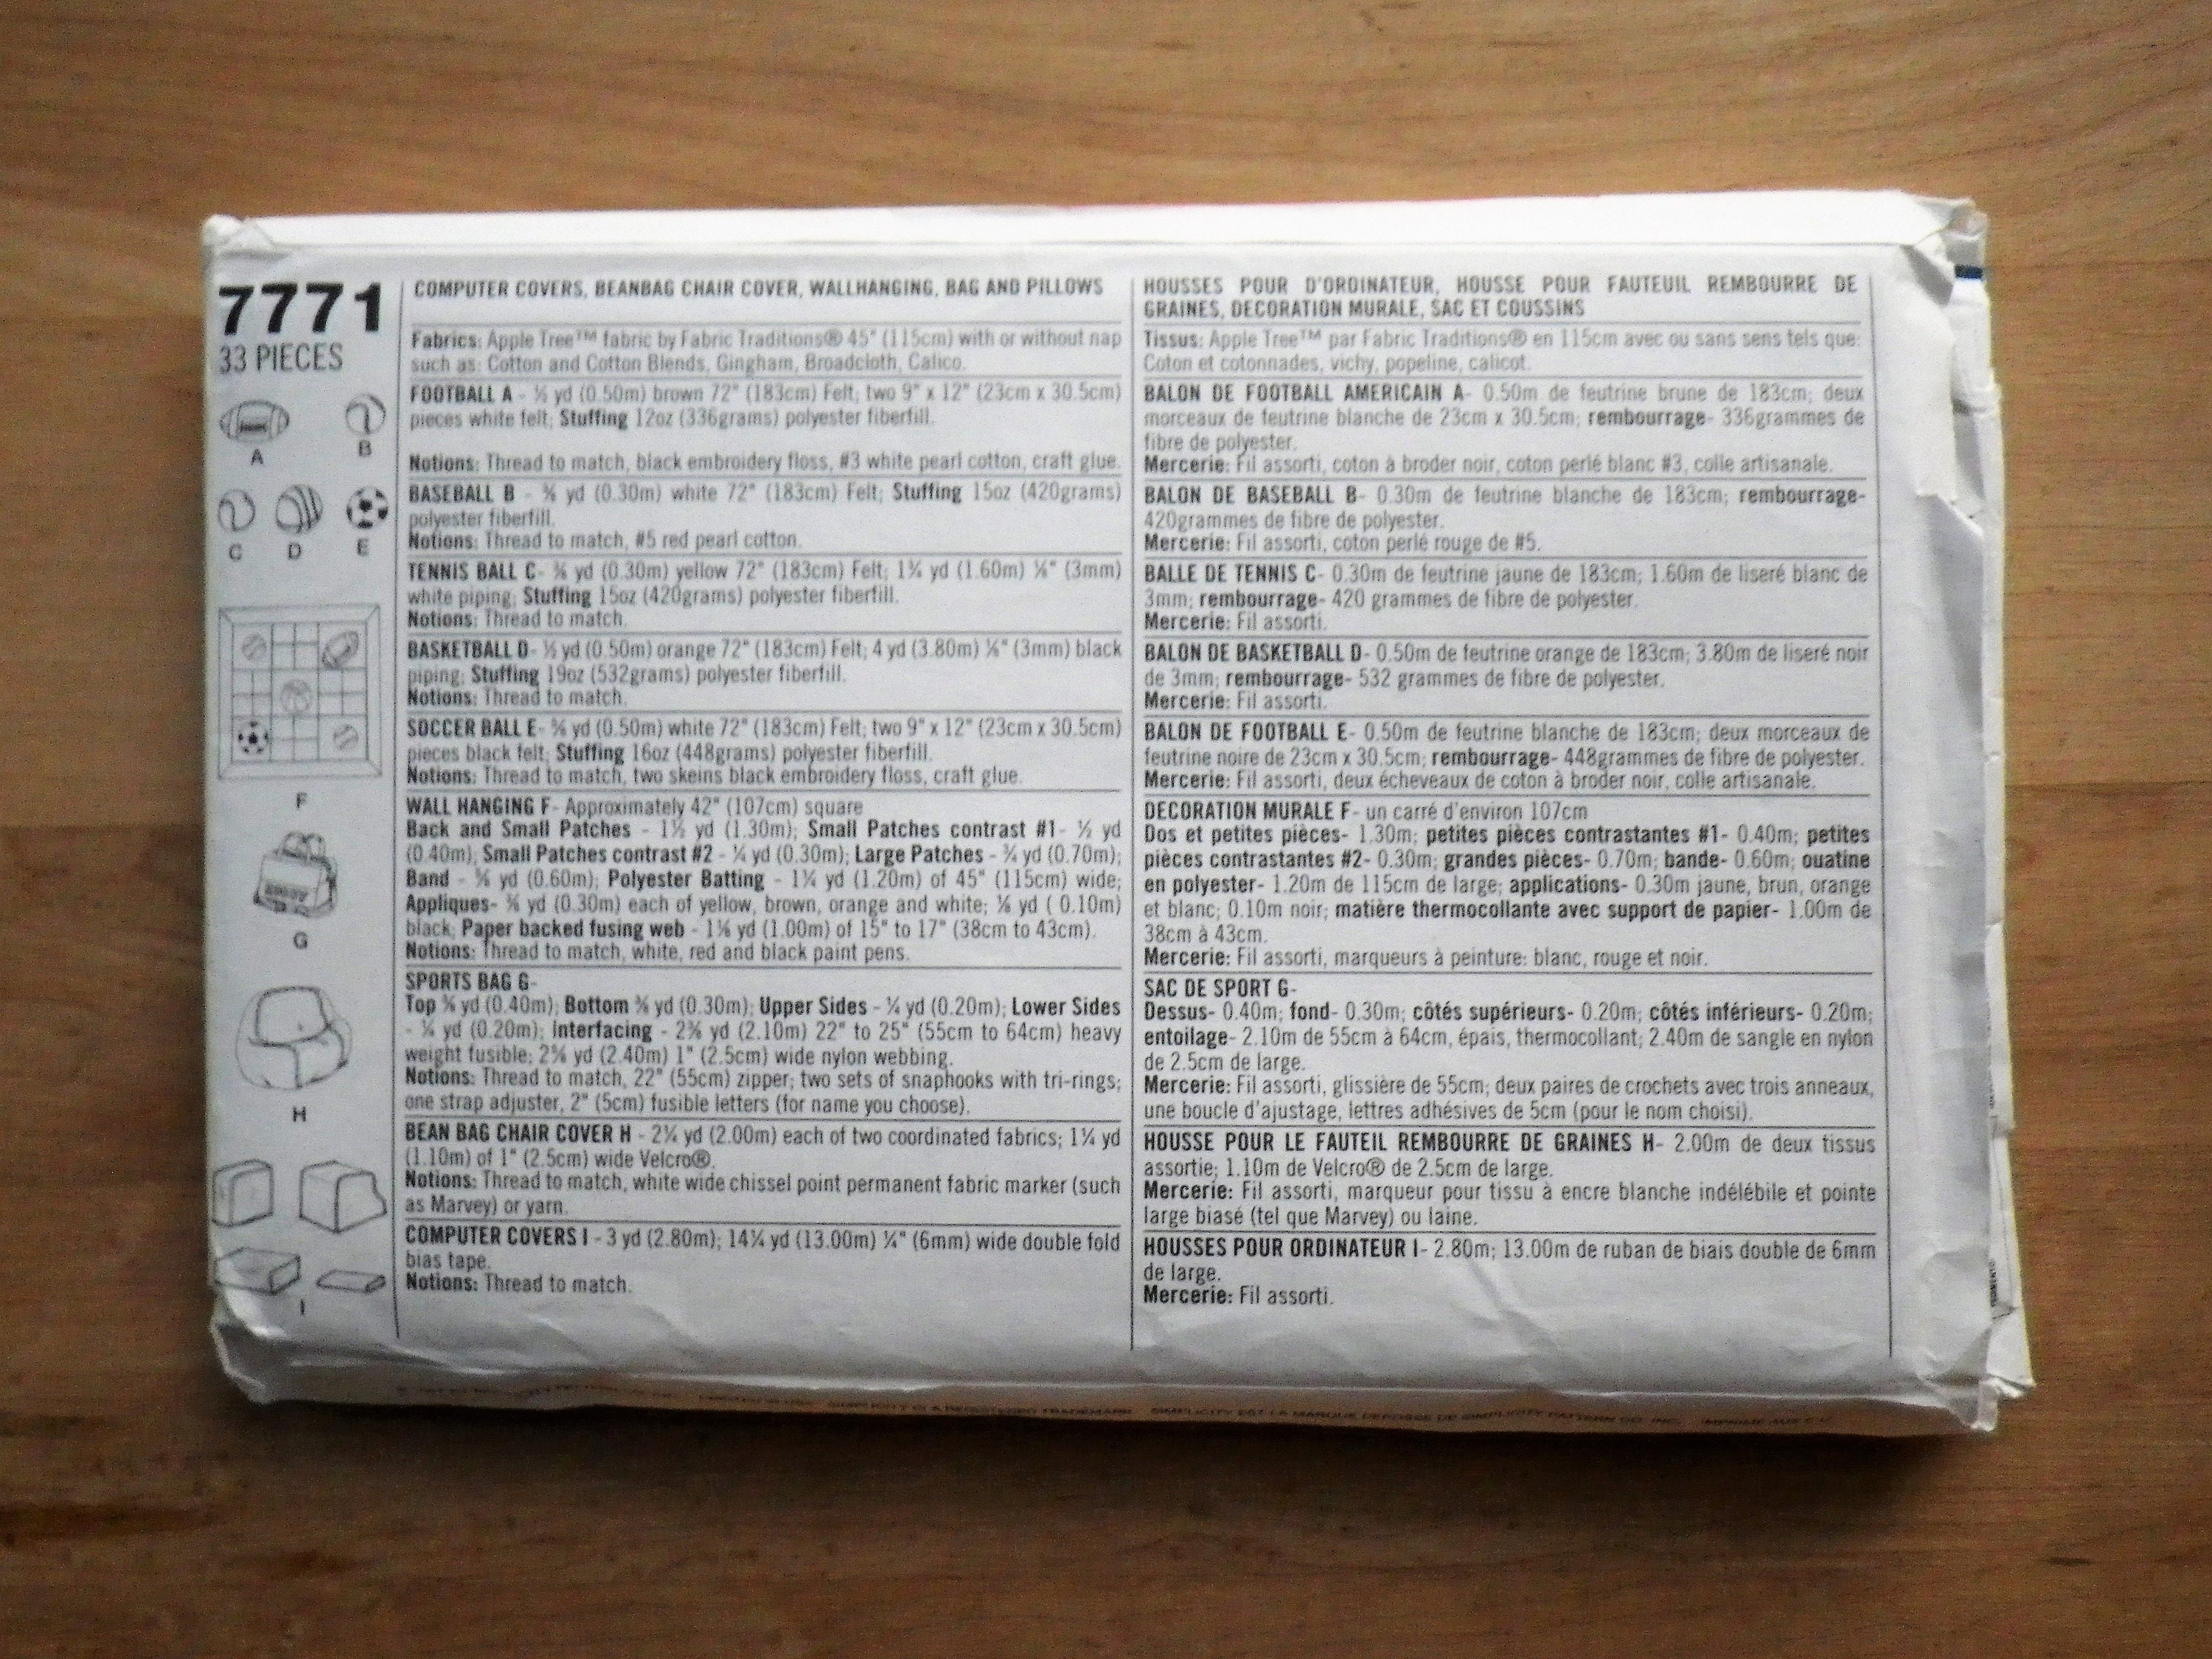 7771
33 PIECES
A
B
C
D
E
F
G
H
I
COMPUTER COVERS, BEANBAG CHAIR COVER, WALLHANGING, BAG AND PILLOWS
Fabrics: Apple Tree™ fabric by Fabric Traditions® 45" (115cm) with or without nap
such as: Cotton and Cotton Blends, Gingham, Broadcloth, Calico.
FOOTBALL A - ½ yd (0.50m) brown 72" (183cm) Felt; two 9" x 12" (23cm x 30.5cm)
pieces white felt; Stuffing 12oz (336grams) polyester fiberfill.
Notions: Thread to match, black embroidery floss, #3 white pearl cotton, craft glue.
BASEBALL B - yd (0.30m) white 72" (183cm) Felt; Stuffing 15oz (420grams)
polyester fiberfill.
Notions: Thread to match, #5 red pearl cotton.
TENNIS BALL C- yd (0.30m) yellow 72" (183cm) Felt; 1¾ yd (1.60m) ⅛" (3mm)
white piping; Stuffing 15oz (420grams) polyester fiberfill.
Notions: Thread to match.
BASKETBALL D- ½ yd (0.50m) orange 72" (183cm) Felt; 4 yd (3.80m) ⅛" (3mm) black
piping; Stuffing 19oz (532grams) polyester fiberfill.
Notions: Thread to match.
SOCCER BALL E- yd (0.50m) white 72" (183cm) Felt; two 9" x 12" (23cm x 30.5cm)
pieces black felt; Stuffing 16oz (448grams) polyester fiberfill.
Notions: Thread to match, two skeins black embroidery floss, craft glue.
WALL HANGING F- Approximately 42" (107cm) square
Back and Small Patches - yd (1.30m); Small Patches contrast #1- yd
(0.40m); Small Patches contrast #2 - ¼ yd (0.30m); Large Patches - ¾ yd (0.70m);
Band - yd (0.60m); Polyester Batting - 1¼ yd (1.20m) of 45" (115cm) wide;
Appliques- yd (0.30m) each of yellow, brown, orange and white; ⅛ yd ( 0.10m)
black; Paper backed fusing web - 1⅛ yd (1.00m) of 15" to 17" (38cm to 43cm).
Notions: Thread to match, white, red and black paint pens.
SPORTS BAG G-
Top yd (0.40m); Bottom yd (0.30m); Upper Sides - ¼ yd (0.20m); Lower Sides
- ¼ yd (0.20m); Interfacing - yd (2.10m) 22" to 25" (55cm to 64cm) heavy
weight fusible; yd (2.40m) 1" (2.5cm) wide nylon webbing.
Notions: Thread to match, 22" (55cm) zipper; two sets of snaphooks with tri-rings;
one strap adjuster, 2" (5cm) fusible letters (for name you choose).
BEAN BAG CHAIR COVER H - yd (2.00m) each of two coordinated fabrics; 1¼ yd
(1.10m) of 1" (2.5cm) wide Velcro®.
Notions: Thread to match, white wide chissel point permanent fabric marker (such
as Marvey) or yarn.
COMPUTER COVERS I - 3 yd (2.80m); 14¼ yd (13.00m) ¼" (6mm) wide double fold
bias tape.
Notions: Thread to match.
HOUSSES POUR D'ORDINATEUR, HOUSSE POUR FAUTEUIL REMBOURRE DE
GRAINES, DECORATION MURALE, SAC ET COUSSINS
Tissus: Apple Tree™ par Fabric Traditions® en 115cm avec ou sans sens tels que:
Coton et cotonnades, vichy, popeline, calicot.
BALON DE FOOTBALL AMERICAIN A- 0.50m de feutrine brune de 183cm; deux
morceaux de feutrine blanche de 23cm x 30.5cm; rembourrage- 336grammes de
fibre de polyester.
Mercerie: Fil assorti, coton à broder noir, coton perlé blanc #3, colle artisanale.
BALON DE BASEBALL B- 0.30m de feutrine blanche de 183cm; rembourrage-
420grammes de fibre de polyester.
Mercerie: Fil assorti, coton perlé rouge de #5.
BALLE DE TENNIS C- 0.30m de feutrine jaune de 183cm; 1.60m de liseré blanc de
3mm; rembourrage- 420 grammes de fibre de polyester.
Mercerie: Fil assorti.
BALON DE BASKETBALL D- 0.50m de feutrine orange de 183cm; 3.80m de liseré noir
de 3mm; rembourrage- 532 grammes de fibre de polyester.
Mercerie: Fil assorti.
BALON DE FOOTBALL E- 0.50m de feutrine blanche de 183cm; deux morceaux de
feutrine noire de 23cm x 30.5cm; rembourrage- 448grammes de fibre de polyester.
Mercerie: Fil assorti, deux écheveaux de coton à broder noir, colle artisanale.
DECORATION MURALE F- un carré d'environ 107cm
Dos et petites pièces- 1.30m; petites pièces contrastantes #1- 0.40m; petites
pièces contrastantes #2- 0.30m; grandes pièces- 0.70m; bande- 0.60m; ouatine
en polyester- 1.20m de 115cm de large; applications- 0.30m jaune, brun, orange
et blanc; 0.10m noir; matière thermocollante avec support de papier- 1.00m de
38cm à 43cm.
Mercerie: Fil assorti, marqueurs à peinture: blanc, rouge et noir.
SAC DE SPORT G-
Dessus- 0.40m; fond- 0.30m; côtés supérieurs- 0.20m; côtés inférieurs- 0.20m;
entoilage- 2.10m de 55cm à 64cm, épais, thermocollant; 2.40m de sangle en nylon
de 2.5cm de large.
Mercerie: Fil assorti, glissière de 55cm; deux paires de crochets avec trois anneaux,
une boucle d'ajustage, lettres adhésives de 5cm (pour le nom choisi).
HOUSSE POUR LE FAUTEIL REMBOURRE DE GRAINES H- 2.00m de deux tissus
assortie; 1.10m de Velcro® de 2.5cm de large.
Mercerie: Fil assorti, marqueur pour tissu à encre blanche indélébile et pointe
large biasé (tel que Marvey) ou laine.
HOUSSES POUR ORDINATEUR I- 2.80m; 13.00m de ruban de biais double de 6mm
de large.
Mercerie: Fil assorti.
SIMPLICITY IS A REGISTERED TRADEMARK SIMPLICITY EST LA MARQUE DEPOSEE DE SIMPLICITY PATTERN CO. INC.